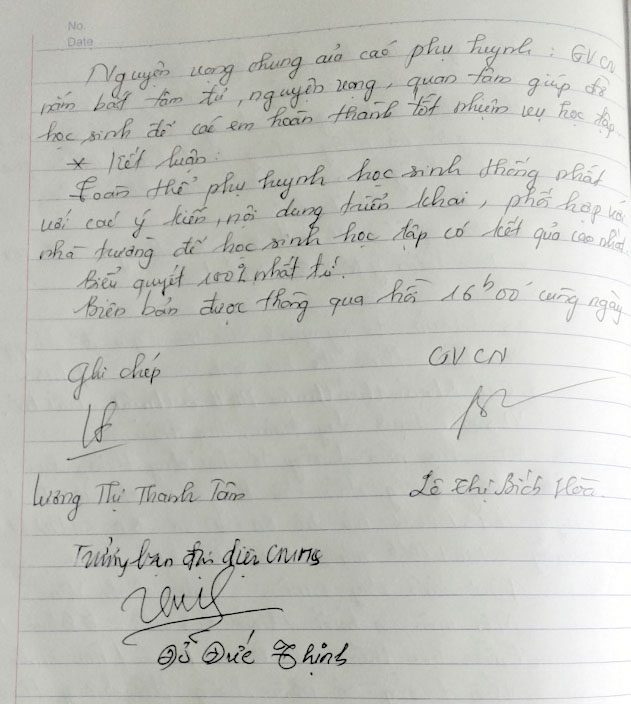 No.
Date
Nguyện vọng chung của các phụ huynh : GVCN
nắm bắt tâm tư, nguyện vọng, quan tâm giúp đỡ
học sinh để các em hoàn thành tốt nhiệm vụ học tập.
* Kết luận:
Toàn thể phụ huynh học sinh thống nhất
với các ý kiến, nội dung triển khai, phối hợp với
nhà trường để học sinh học tập có kết quả cao nhất.
Biểu quyết 100% nhất trí.
Biên bản được thông qua hồi 16h00' cùng ngày
Ghi chép
GVCN
Lương Thị Thanh Tâm
Lê Thị Bích Hòa
Trưởng ban đại diện CMHS
Đỗ Đức Thịnh